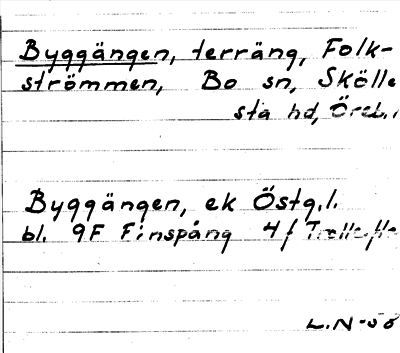 Byggängen, terräng, Folk-
strömmen, Bo sn, Skölle
sta hd, Öreb.
Byggängen, ek Östg.l.
bl. 9F Finspång 4f
L.N-58